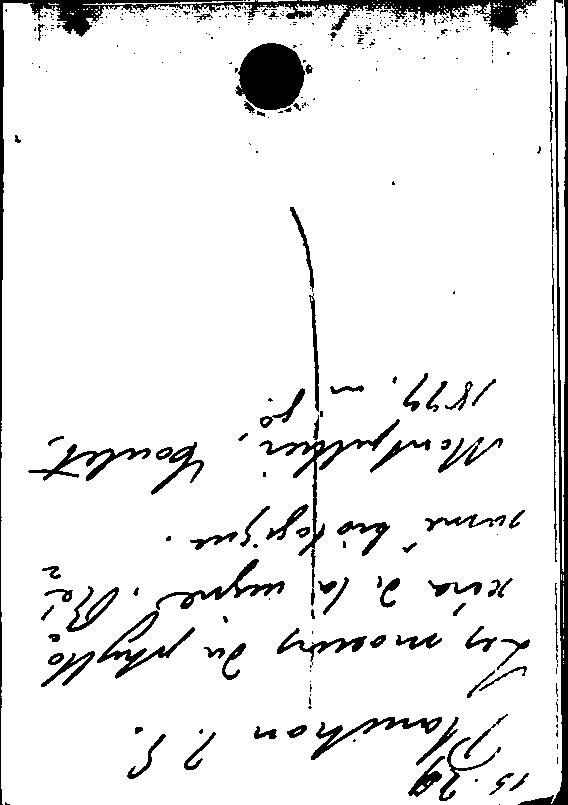 Planchon J. E.
Les moeurs du phyllo=
xéra de la vigne. Ré=
sumé biologique.
Montpellier, Coulet,
1877. in 8º